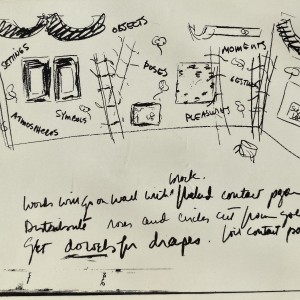 OBJECTS
SETTINGS
MOMENTS
POSES
GESTURES
SYMBOLS
PLEASURES
ATMOSPHERES
black.
Words will go on wall with contact paper
Distribute roses and circles cut from gold
Get dowels for drapes. contact